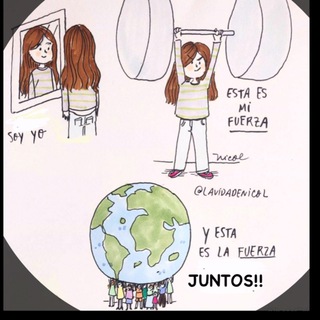 soy yo
ESTA ES
MI
FUERZA
Nicol
@LAVIDADENICOL
Y ESTA
ES LA FUERZA
JUNTOS!!